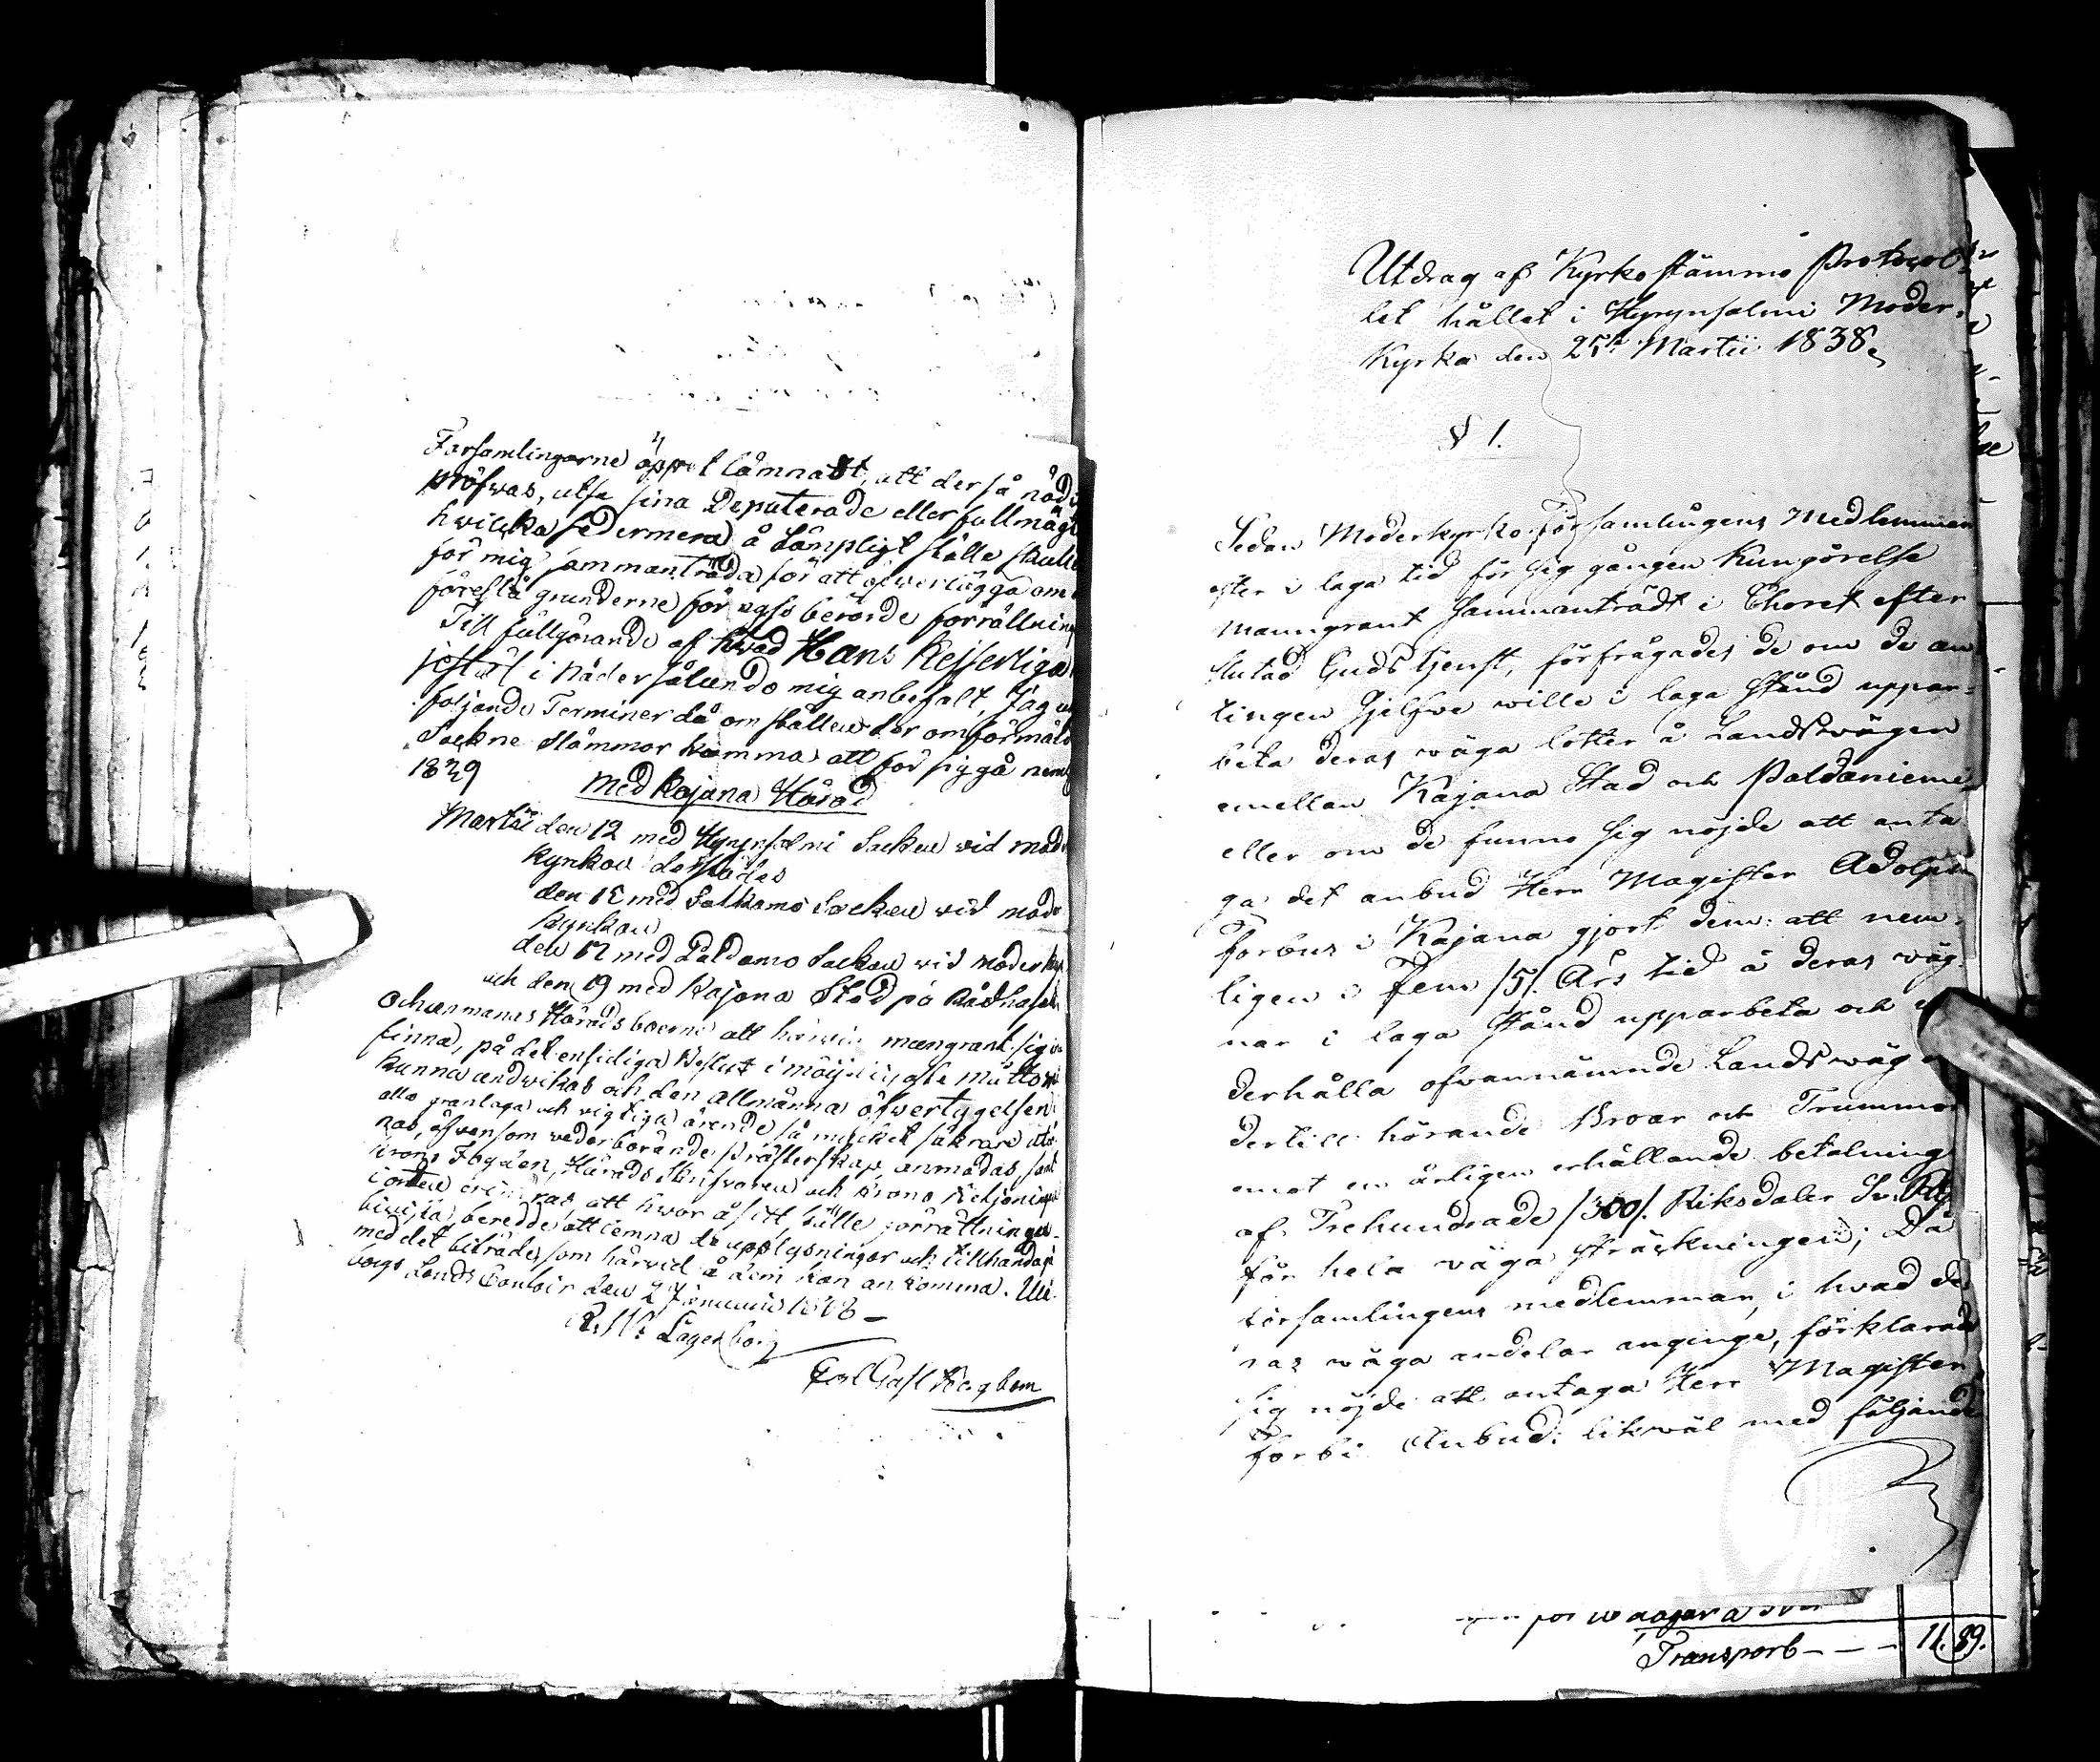 Församlingarne öppet lämnadt, att der så nödi
pröfwas, utse sina Deputerade eller fullmägt
hwilcka sedermera å Lämpligt ställe skulle
för mig sammanträda för att öfwerlägga om
föreslå grunderne för agss berörde förrättning
Till fullgörande af hwad Hans Kejserliga
jestät i Nåder sålunda mig anbefalt, Jag
följande Terminer då om ställen der omförmäld
Sockne Stämmor komma att för sig gå neml
1829
Med Kajana Härad
Martii den 12 med Hyrynsalmi Socken wid mode
kyrkan derstädes
den 15 med Sotkamo Socken wid mode
kyrkan
den 17 med Paldamo Socken wid moderkyr
och den 19 med Kajana Stad på Rådhuset
Och anmanas Häradsboerne att härwid mangrant sig in
finna, på det ensidiga Beslut i möjeligaste måtto må
kunna undwikas och den allmänna öfwertygelsen i
alla granlaga och wigtiga ärende så mycket säkrare utrö
nas, äfwensom wederbörande Prästerskap anmodas samt
krono Fogden, Härads Skrifvaren och Krono Betjeningen
i orten erindras, att hwar å sitt ställe förrättningen
biwista, beredde att lemna de upplysningar och tillhandagå
med det biträde, som härvid å dem kan ankomma. Uleå
borgs Lands Contoir den 2 Januarii 1828 –
R. W. Lagerborg
Carl Gust Bergbom
Utdrag af Kyrkostämmo Protocol
let hållet i Hyrynsalmi Moder-
Kyrka den 25te Martii 1838.
§ 1.
Sedan Moderkyrko-Församlingens Medlemmar
efter i laga tid för sig gången Kungörelse
manngrant sammanträdt i Choret efter
slutad Gudstjenst, förfrågades de om de an
tingen Sjelfve wille i laga stånd uppar-
beta deras wäga lotter å Landswägen
emellan Kajana Stad och Paldaniemi,
eller om de funno sig nöjde att anta
ga det anbud Herr Magister Adolph
Forbus i Kajana gjort dem: att nem-
ligen i Fem /5/. Års tid å deras väg
nar i laga stånd upparbeta och un
derhålla ofvannämnde Landswäg
dertill hörande Broar och Trummor
emot en årligen erhållande betalning
af Trehundrade /300/. Riksdaler Sv. Rg
för hela väga sträckningen; Då
församlingens medlemmar, i hvad de
ras wäga andelar anginge, förklarade
sig nöjde att antaga Herr Magister
Forbi Anbud: likwäl med följande
Transport – – – 11. 89.